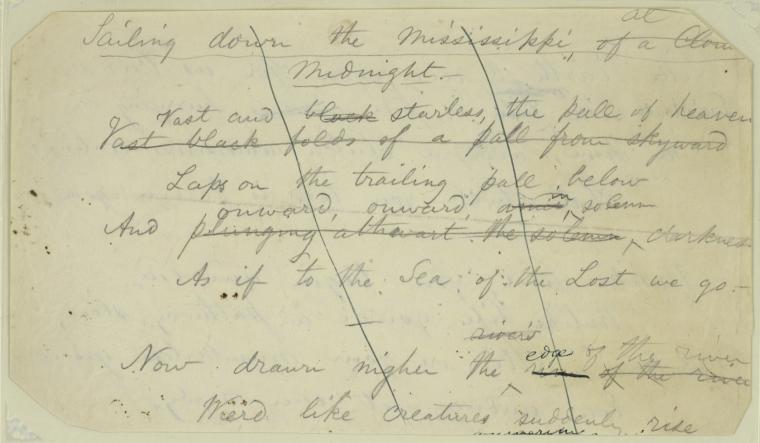 at
Sailing down the Mississippi, of a Clou
Midnight.—
Vast and black starless, the pall of heaven
Vast black folds of a pall from skyward
Laps on the trailing pall below
onward, onward, in solemn
And plunging athwart the solemn, darkness
As if to the Sea of the Lost we go.—
river's
edge of the river
Now drawn nigher the of the river
Weird like creatures suddenly rise